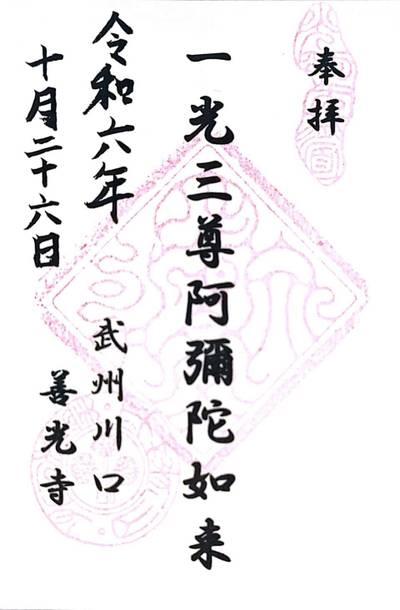 奉拝
一光三尊阿彌陀如来
武州川口
善光寺
令和六年
十月二十六日